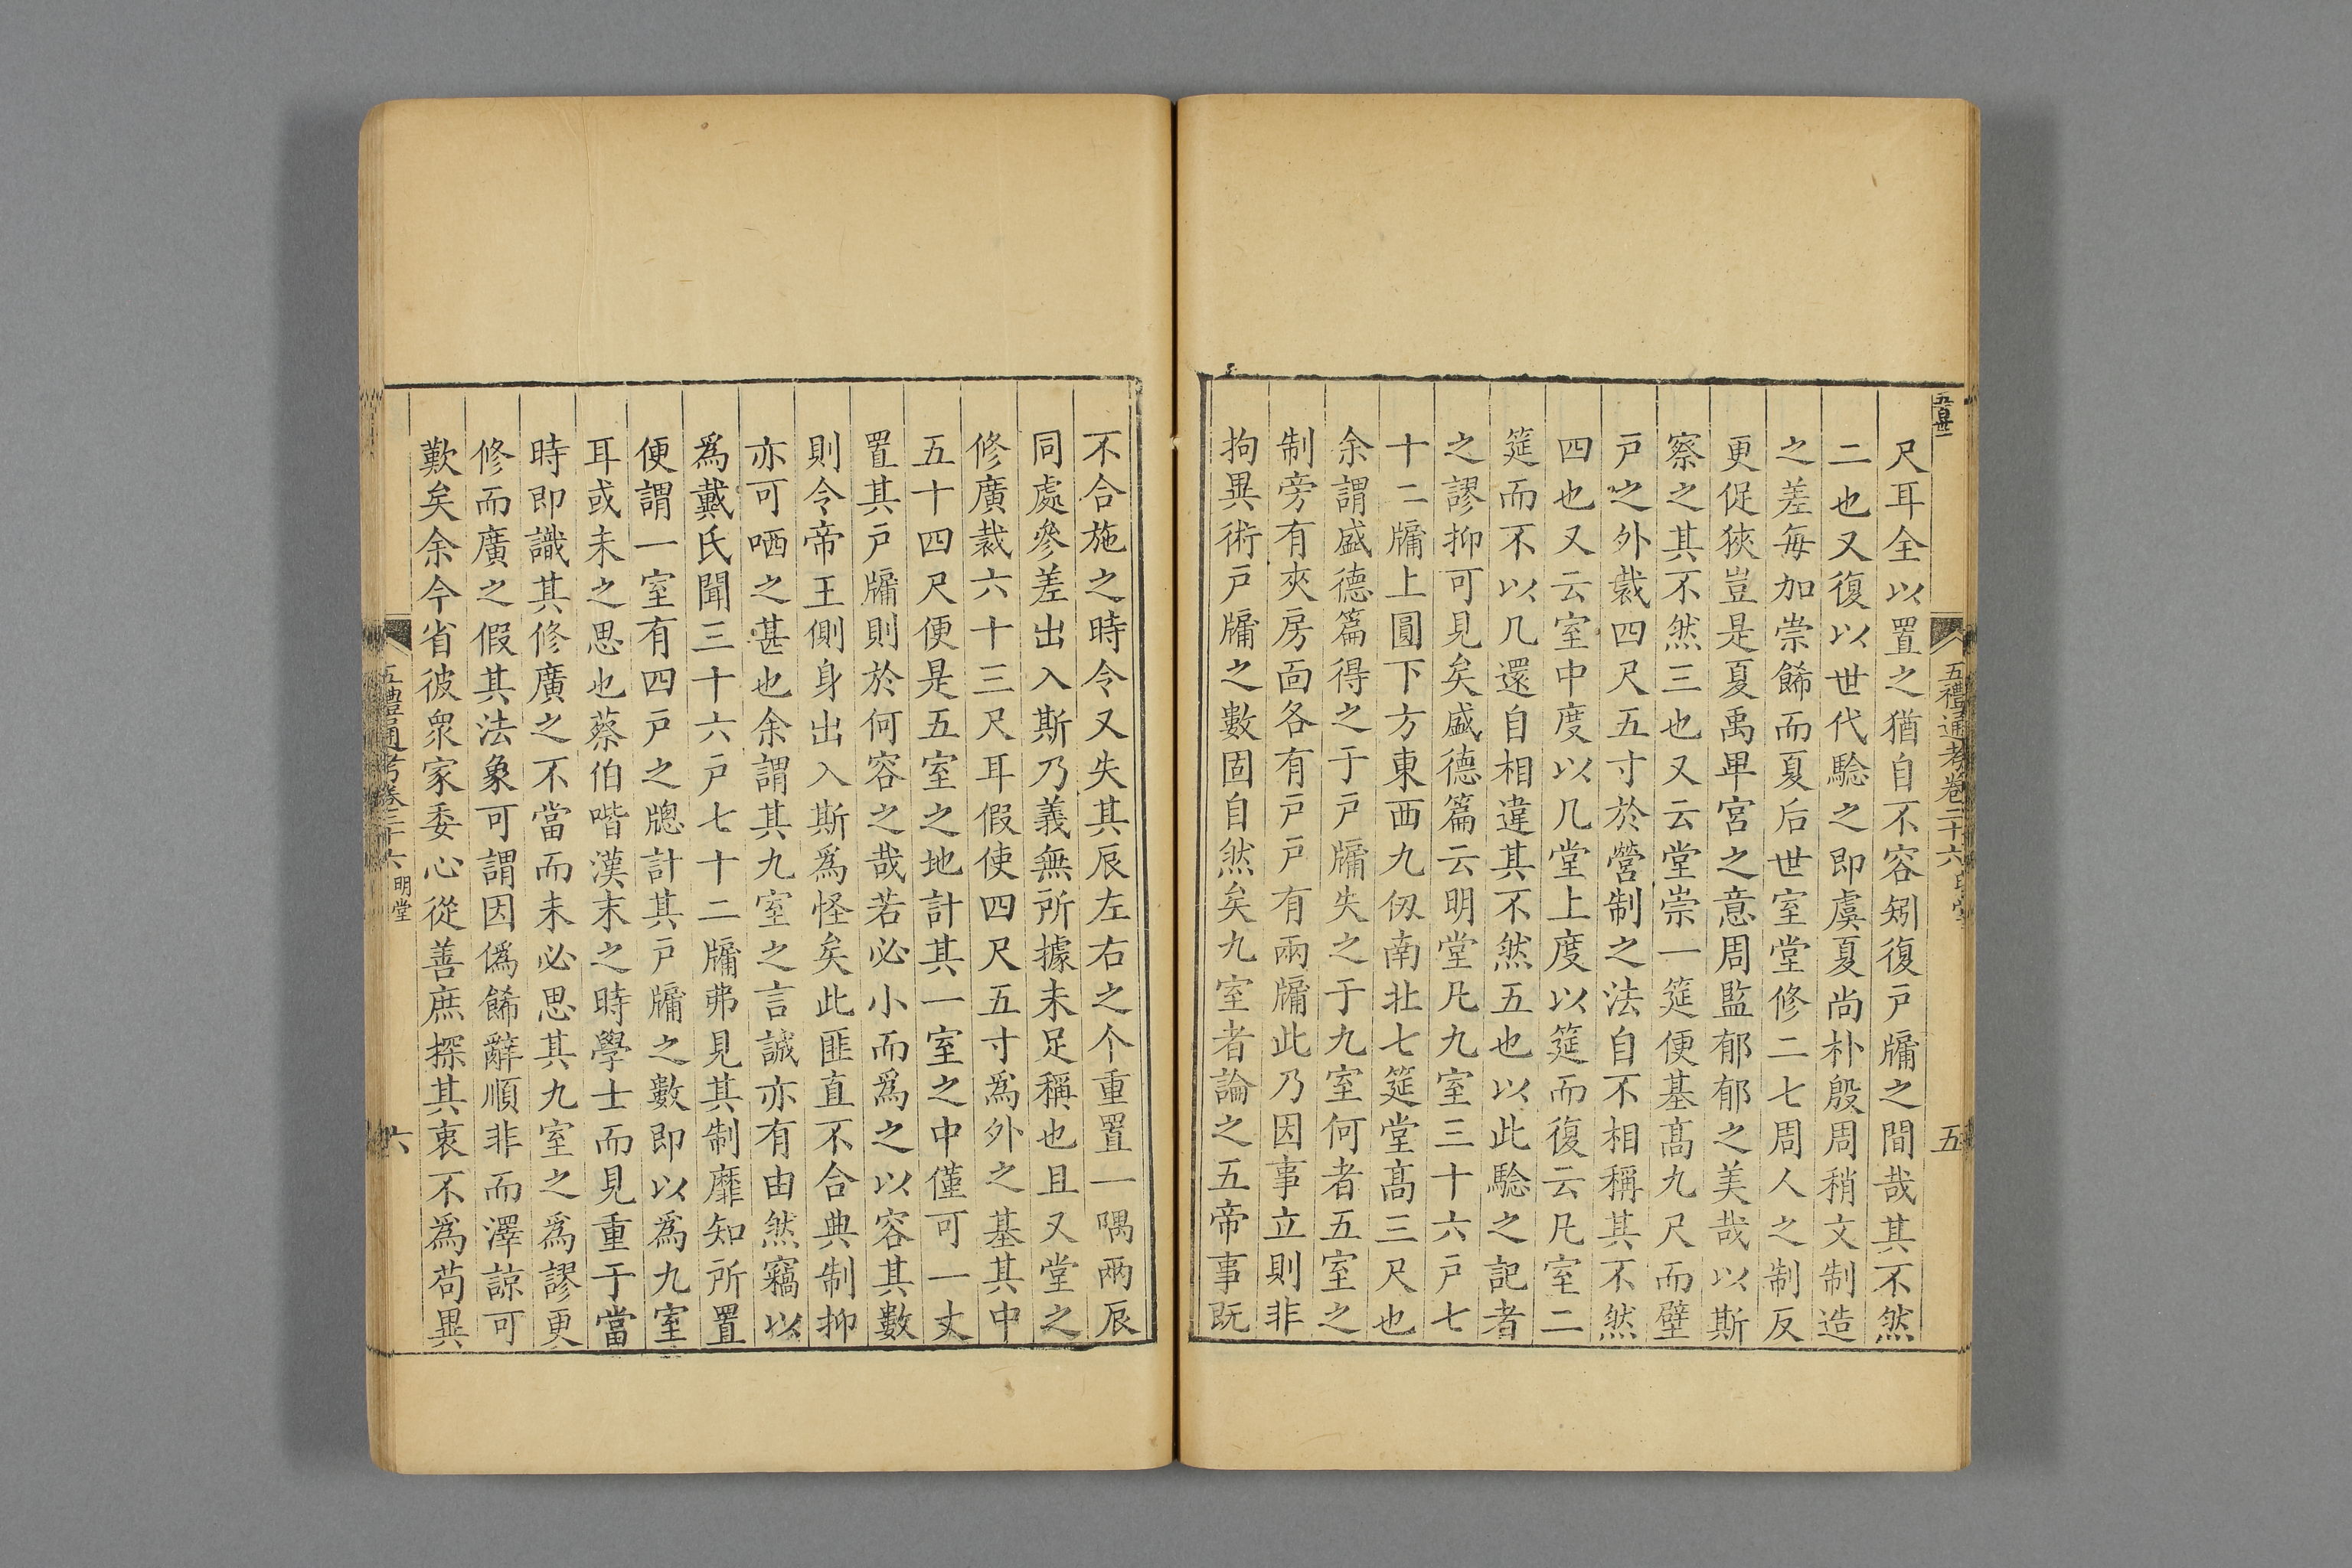 五百廿二
五禮通考卷二十六
五
尺耳全以置之猶自不容矧復戸牖之間哉其不然
二也又復以世代騐之即虞夏尚朴殷周稍文制造
之差每加崇餙而夏后世室堂修二七周人之制反
更促狹豈是夏禹卑宮之意周監郁郁之美哉以斯
察之其不然三也又云堂崇一筵便基髙九尺而壁
戸之外裁四尺五寸於營制之法自不相稱其不然
四也又云室中度以几堂上度以筵而復云凡室二
筵而不以几還自相違其不然五也以此騐之記者
之謬抑可見矣盛德篇云明堂凡九室三十六戸七
十二牖上圓下方東西九仭南北七筵堂髙三尺也
余謂盛德篇得之于戸牖失之于九室何者五室之
制旁有夾房面各有戸戸有兩牖此乃因事立則非
拘異術戸牖之數固自然矣九室者論之五帝事既
不合施之時令又失其辰左右之个重置一隅兩辰
同處參差出入斯乃義無所據未足稱也且又堂之
修廣裁六十三尺耳假使四尺五寸為外之基其中
五十四尺便是五室之地計其一室之中僅可一丈
置其戸牖則於何容之哉若必小而為之以容其數
則令帝王側身出入斯為怪矣此匪直不合典制抑
亦可哂之甚也余謂其九室之言誠亦有由然竊以
為戴氏聞三十六戸七十二牖弗見其制靡知所置
便謂一室有四戸之牕計其戸牖之數即以為九室
耳或未之思也蔡伯喈漢末之時學士而見重于當
時即識其修廣之不當而未必思其九室之為謬更
修而廣之假其法象可謂因偽餙辭順非而澤諒可
歎矣余今省彼衆家委心從善庶探其衷不為苟異
五禮通考卷二十六 明堂
六